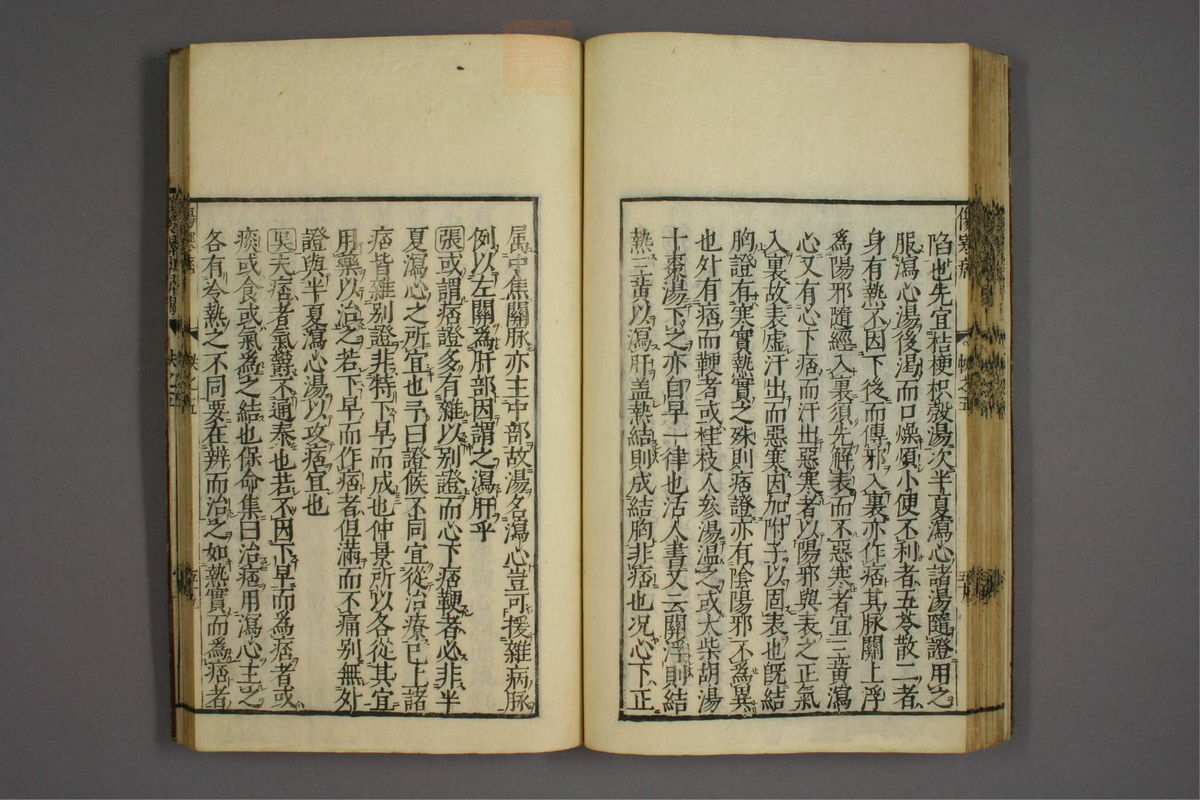 陷也先宜桔梗枳殼湯次半夏瀉心諸湯隨證用之
服瀉心湯後渴而口燥煩小便不利者五苓散二者
身有熱不因下後而傳邪入裏亦作痞其脉關上浮
為陽邪隨經入裏須先解表而不惡寒者宜三黃瀉
心又有心下痞而汗出惡寒者以陽邪與表之正氣
入裏故表虛汗出而惡寒因加附子以固表也旣結
胸證有寒實熱實之殊則痞證亦有陰陽邪不為異
也外有痞而鞕者或桂枝人参湯溫之或大柴胡湯
十棗湯下之亦自早一律也活人書又云關浮則結
熱三黃以瀉肝盖熱結則成結胸非痞也况心下正
属中焦關脉亦主中部故湯名瀉心豈可援雜病脉
例以左關爲肝部因謂之瀉肝乎
張或謂痞證多有雜以别證而心下痞鞕者必非半
夏瀉心之所宜也予曰證候不同宜從治療已上諸
痞皆雜别證非特下早而成也仲景所以各從其宜
用藥以治之若下早而作痞者但滿而不痛别無外
證與半夏瀉心湯以攻痞宜也
吴夫痞者氣欝不通泰也若不因下早而為痞者或
痰或食或氣爲之結也保命集曰治痞用瀉心主之
各有冷熱之不同要在辨而治之如熱實而爲痞者